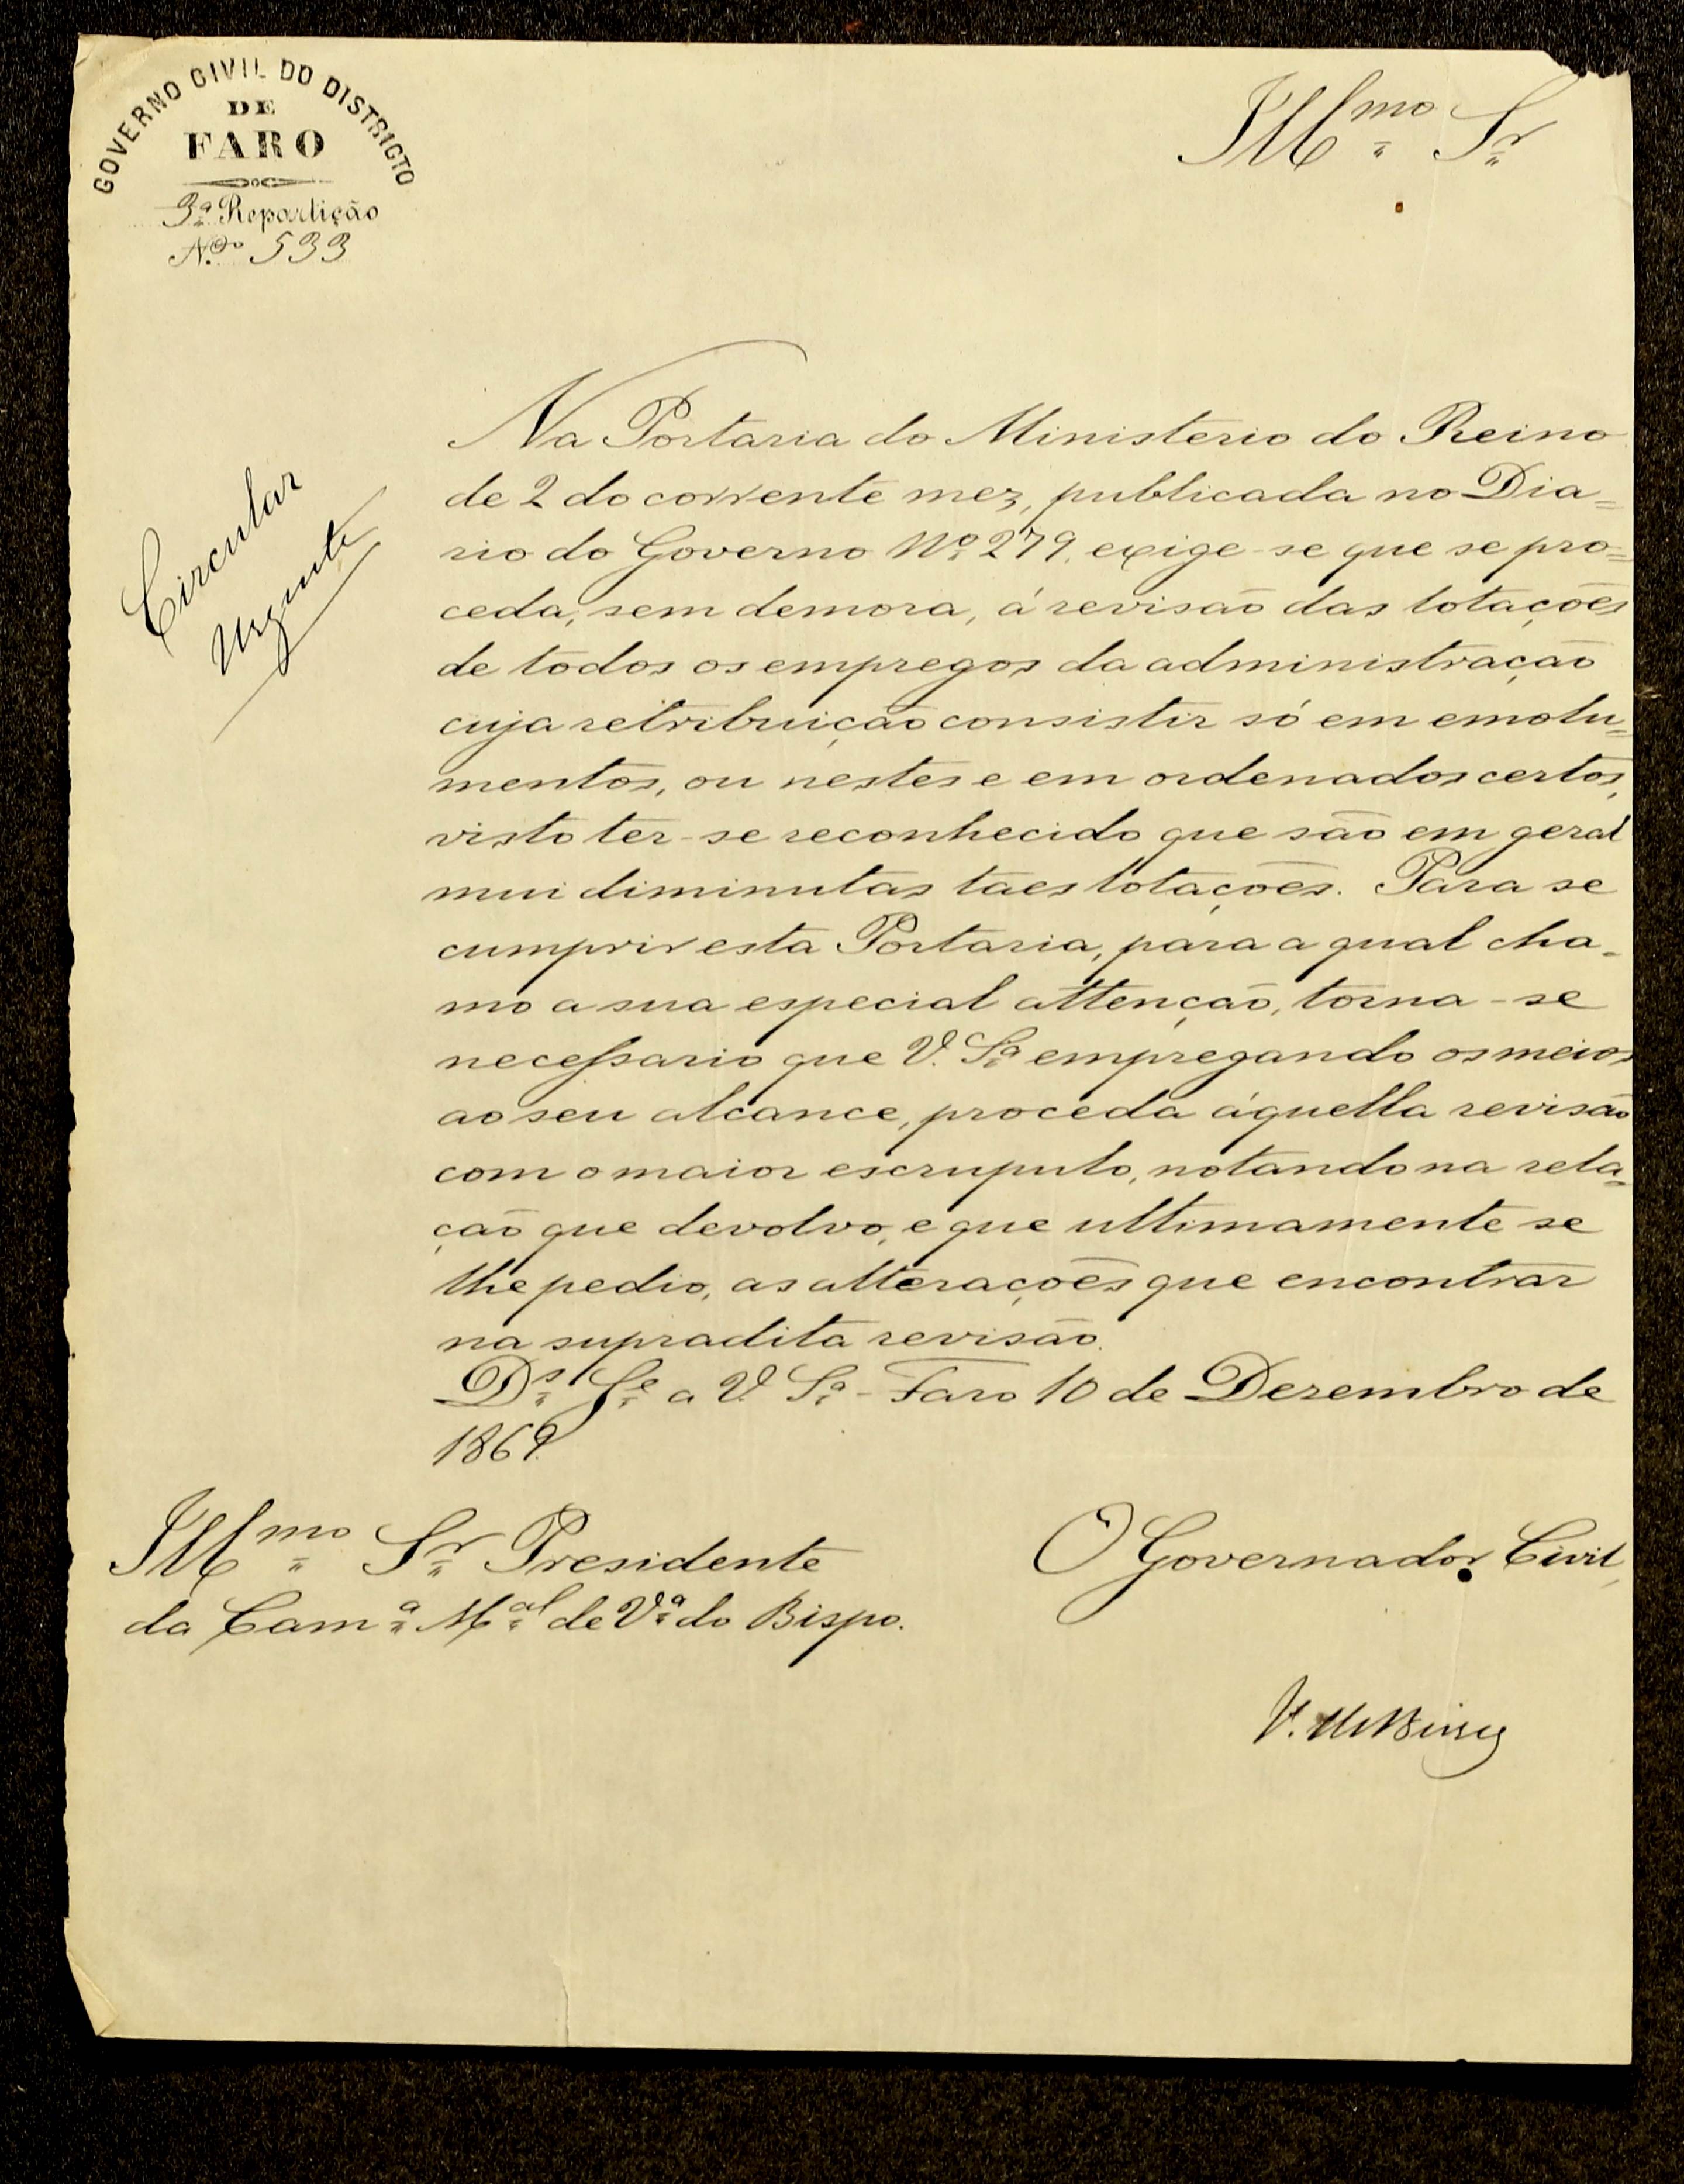 GOVERNO CIVIL DO DISTRICTO
DE
FARO
3ª Repartição
N.º 533
Illmo Sr
Circular
Urgente
Na Portaria do Ministerio do Reino
de 2 do corrente mez, publicada no Dia=
rio do Governo Nº 279, exige-se que se pro=
ceda, sem demora, á revisão das lotações
de todos os empregos da administração
cuja retribuição consistir só em emolu=
mentos, ou nestes e em ordenados certos,
visto ter-se reconhecido que são em geral
mui diminutas taes lotações. Para se
cumprir esta Portaria, para a qual cha=
mo a sua especial attenção, torna-se
necessario que V. Sª empregando os meios
ao seu alcance, proceda áquella revisão
com o maior escrupulo, notando na rela=
ção que devolvo, e que ultimamente se
lhe pedio, as alterações que encontrar
na supradita revisão.
Ds Ge a V. Sª - Faro 10 de Dezembro de
1869.
Illmo Sr Presidente
da Camª Mal de Vª do Bispo.
O Governador Civil,